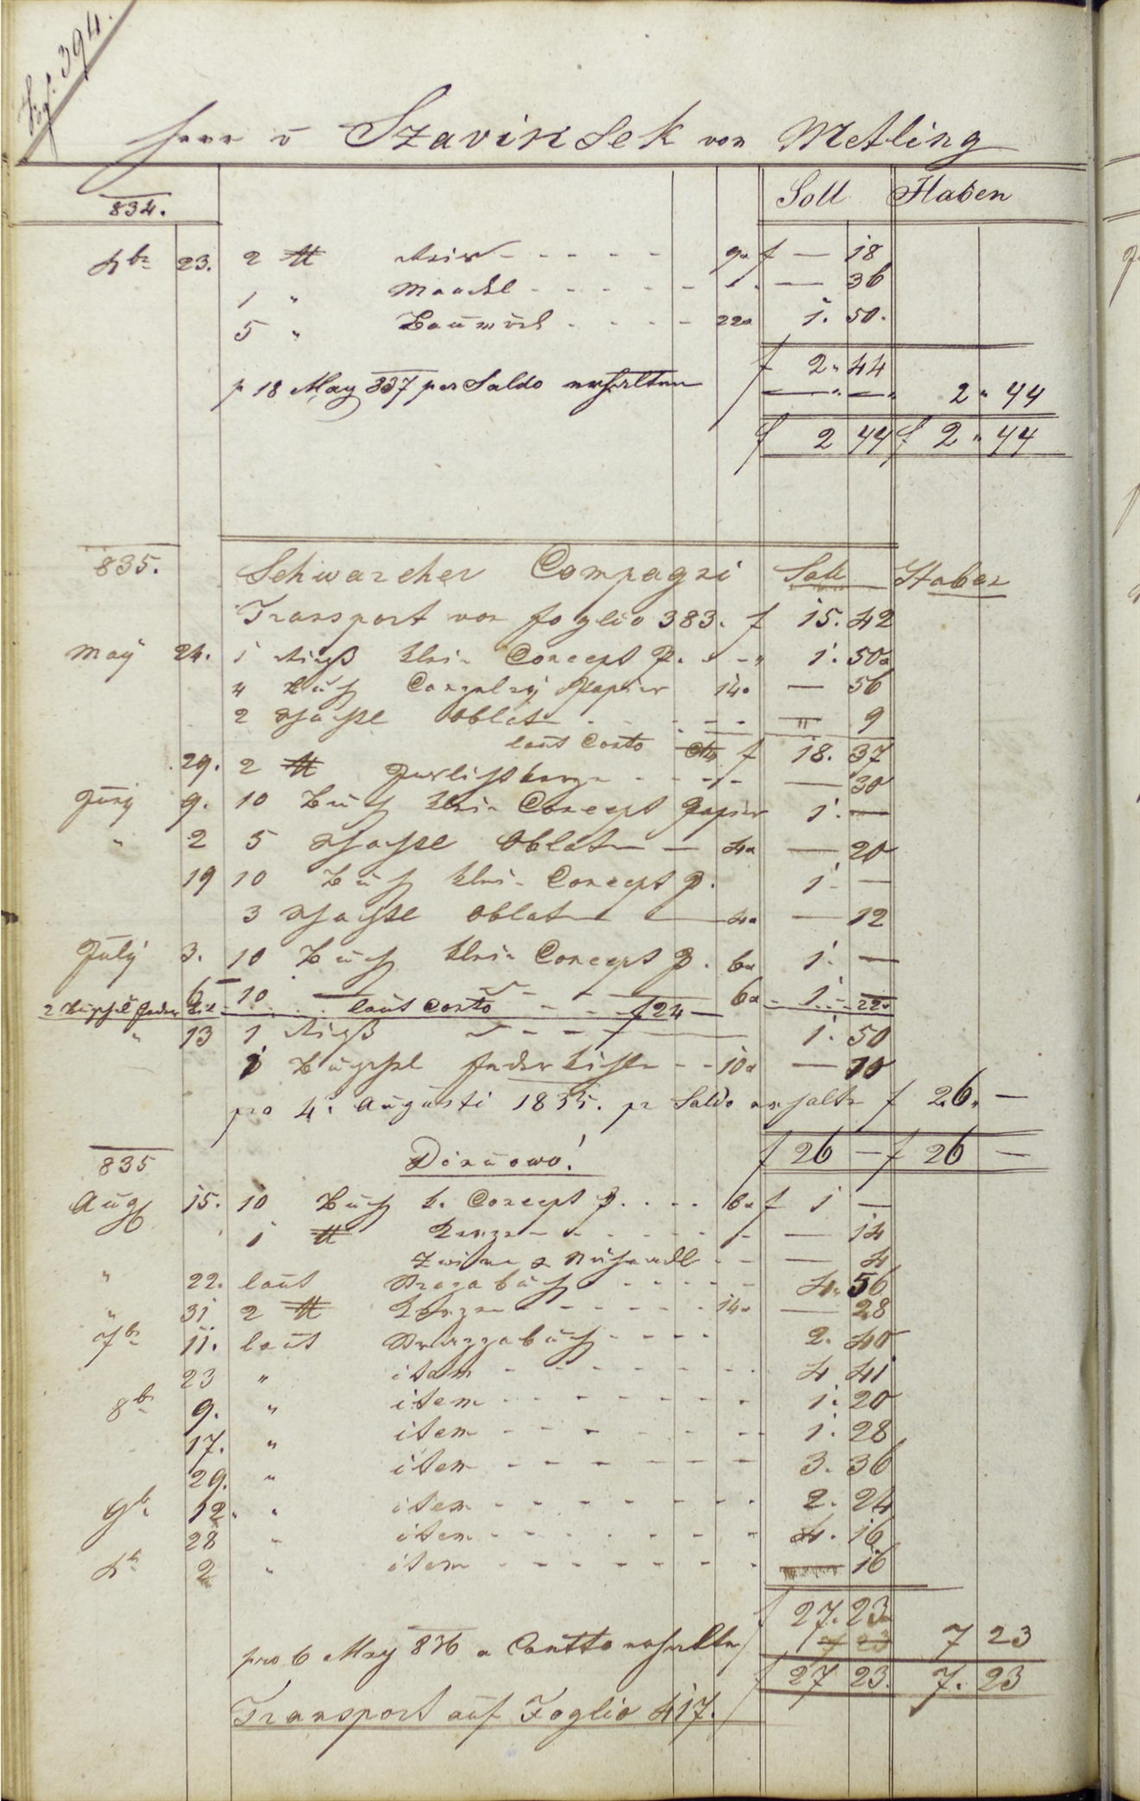 394.
Herr v Szavinsek von Metling
834. Soll Haben
Xbr 23. 2 ℔ Reis - - - - - 9x f — 18
1 " Mandl - - - - - — 36
5 " Baumöhl - - - - 22x 1. 50.
f 2 " 44
p 18 May 837 per Saldo erhalten — " — " 2 " 44
f 2 44 f 2 " 44
835. Schwarcher Compagni Soll Haben
Transport von foglio 383. f 15. 42
May 24. 1 Rieß klein Concept P. - - " 1. 50x
4 Buch Conzeley Papier 14x — 56
2 Schachtel Oblat - - - - - " 9
laut Conto f 18. 37
29. 2 ℔ - - - - — 30
Juny 9. 10 Buch klein Concept Papier 1. —
" 2 5 Schachtel Oblaten — 4x — 20
19 10 Buch klein Concept P. 1. —
3 Schachtel Oblaten — 4x — 12
July 3. 10 Buch klein Concept P. 6x 1. —
6 10 — - - — 6x 1. —
2 Büschl Feder laut Conto - - f 24 — 22x
" 13 1 Rieß - - - - 1. 50
1 Büschel Feder - - 10x — 10
pro 4. Augusti 1835. pr Saldo erhalten f 26. —
f 26 — f 26 —
835 Dornowo!
Aug 15. 10 Buch k. Concept P. . . . 6x f 1 —
1 ℔ Kerzen - - - - - - — 14
Zwirn & - - — 4
" 22. laut - - - - - 4. 56
" 31. 2 ℔ Kerzen - - - - - - 14x — 28
7br 11. laut - - - - 2. 40
23 " item - - - - - - - 4 41
8br 9. " item - - - - - - - 1. 20
17. " item - - - - - - - 1. 28
29. " item - - - - - - - 3. 36
9br 12. " item - - - - - - - 2. 24
28 " item - - - - - - - 4. 16
Xbr 2 " item - - - - - - - 16
f 27. 23
pro 6 May 836 a Contto erhalten 7 23 7 23
f 27 23. 7. 23
Transport auf Foglio 417.